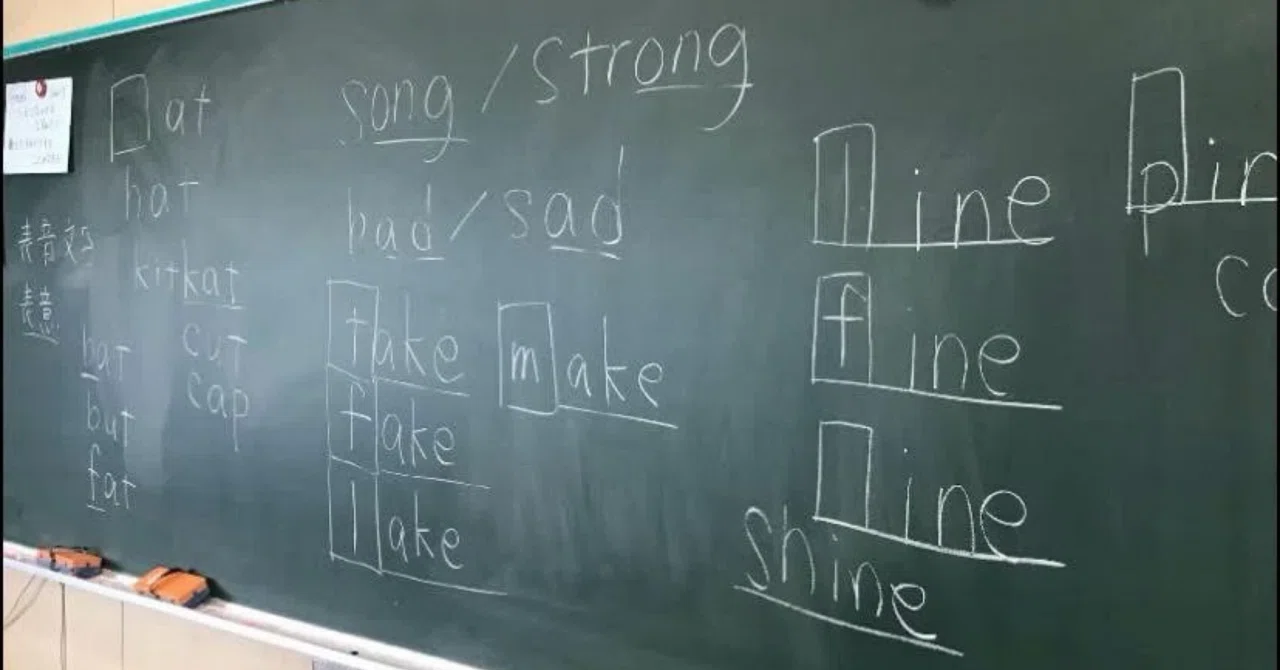 at
hat
kitkat
cut
cap
表音文字
表意
bat
but
fat
song / strong
bad / sad
take
fake
lake
make
line
fine
ine
shine
pin
co